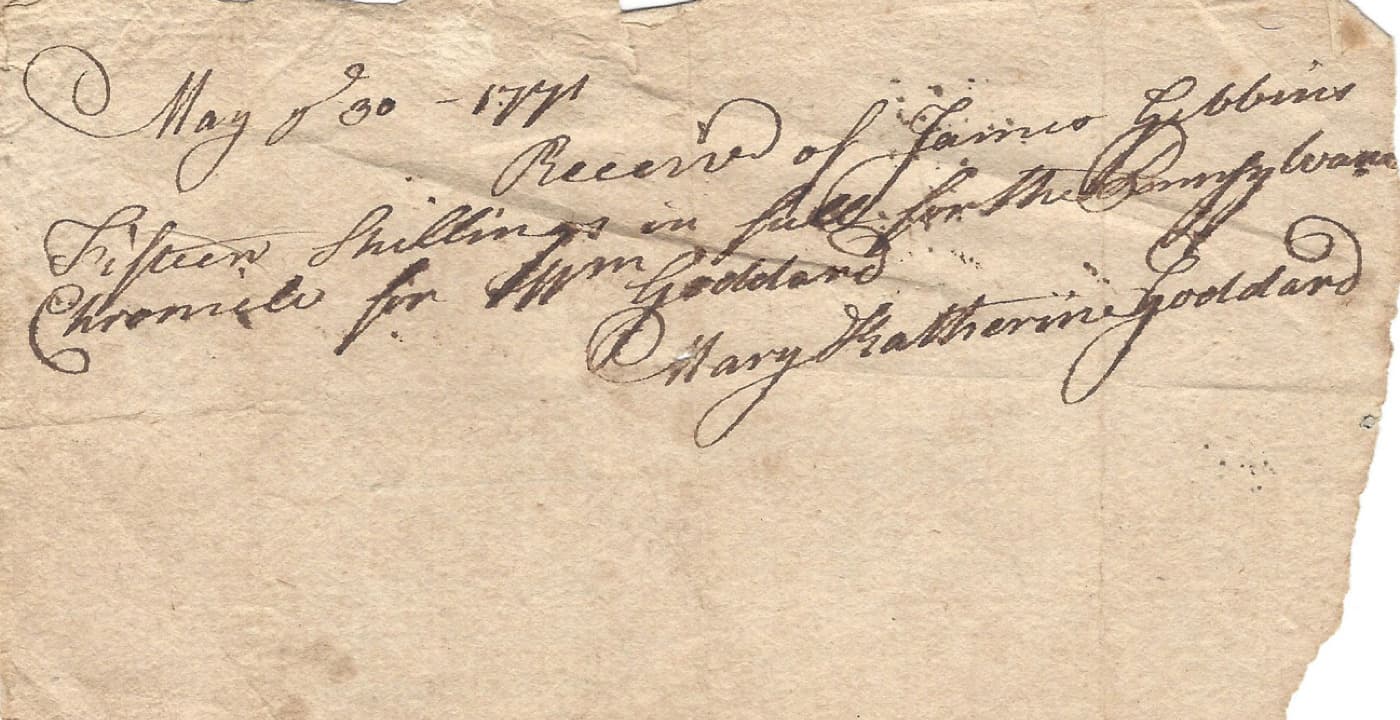 May ye 30 - 1771
Received of James Gibbins
Fifteen Shillings in full for the Pennsylvani
Chronicle for Wm Goddard
Mary Katherine Goddard